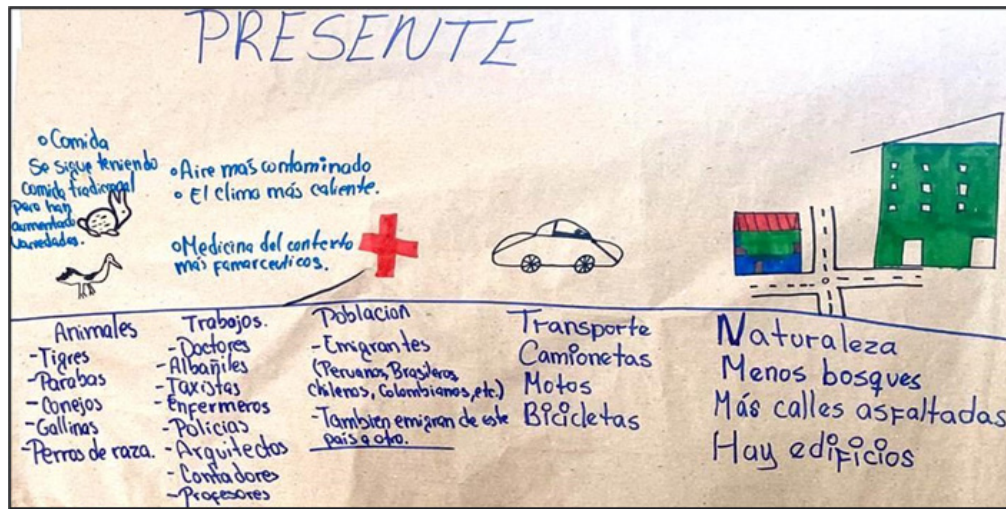 PRESENTE
o Comida
Se sigue teniendo
comida tradicional
pero han
aumentado
variedades.
o Aire más contaminado
o El clima más caliente.
o Medicina del contexto
más famarceuticos.
Animales
- Tigres
- Parabas
- Conejos
- Gallinas
- Perros de raza.
Trabajos.
- Doctores
- Albañiles
- Taxistas
- Enfermeros
- Policías
- Arquitectos
- Contadores
- Profesores
Población
- Emigrantes
(Peruanos, Brasileros,
chilenos, Colombianos, etc.)
- También emigran de este
país a otro.
Transporte
Camionetas
Motos
Bicicletas
Naturaleza
Menos bosques
Más calles asfaltadas
Hay edificios